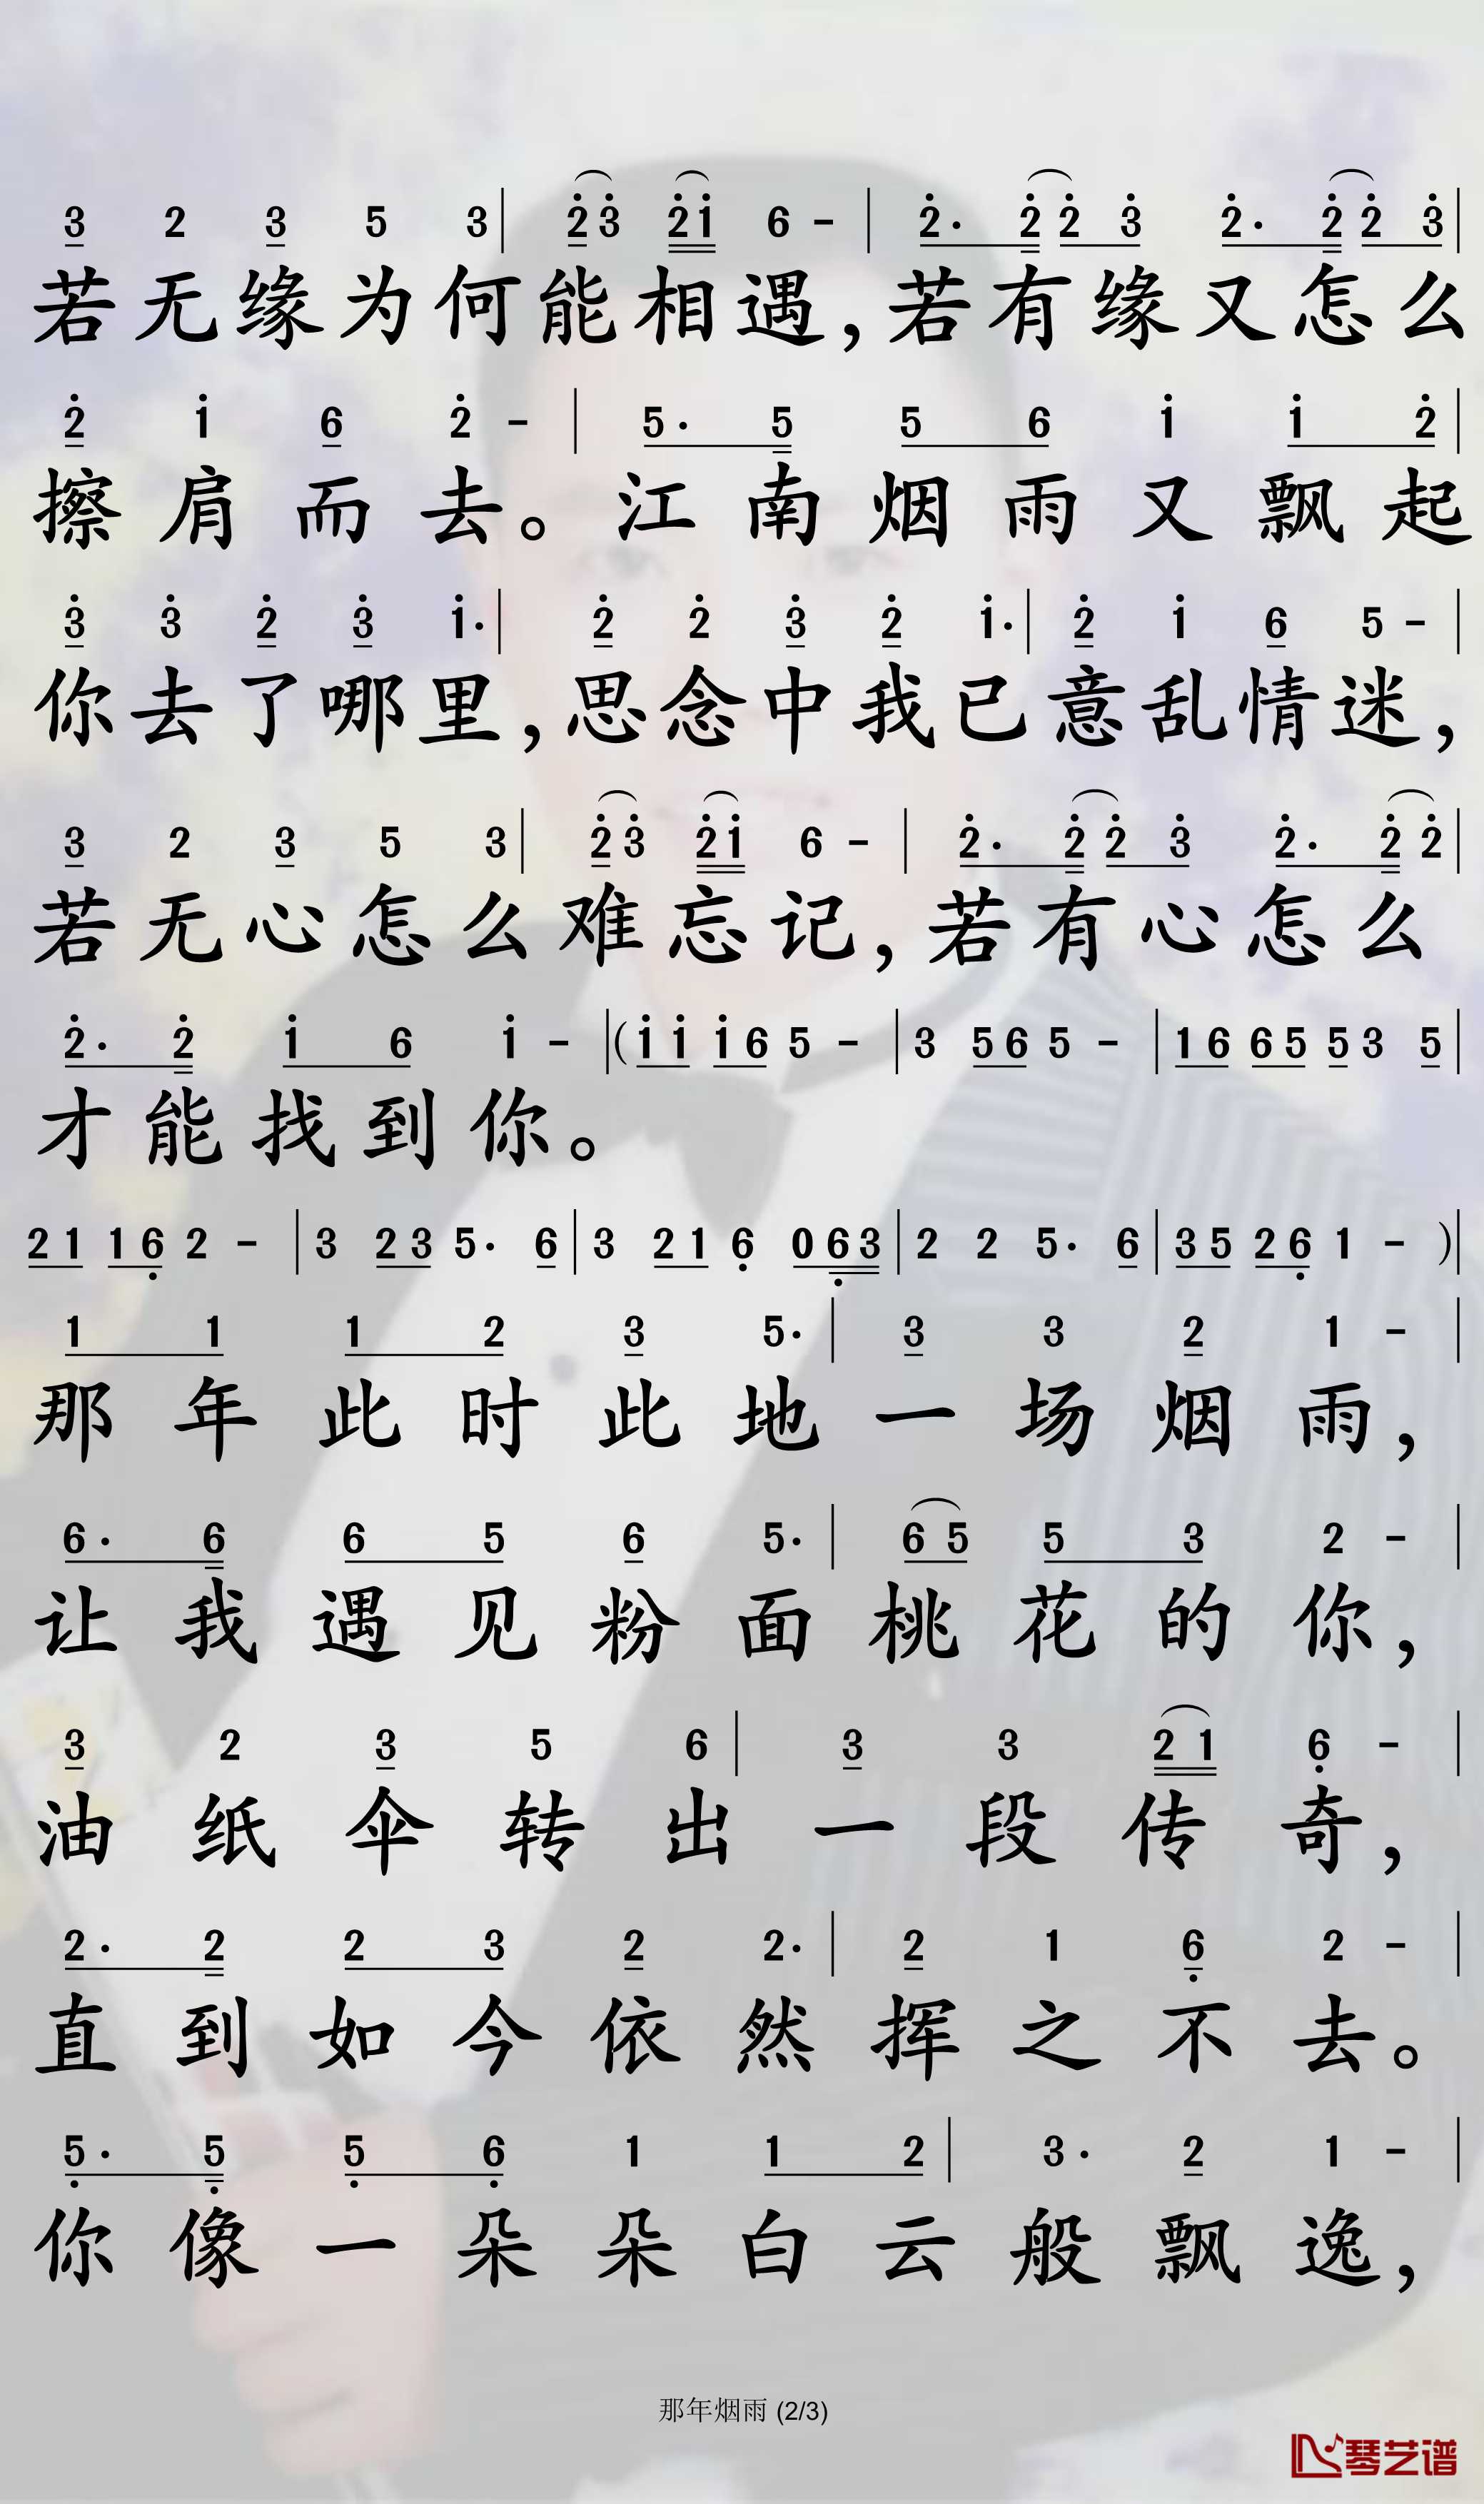 3 2 3 5 3 | 2̇ 3̇ 2̇ 1̇ 6 - | 2̇. 2̇ 2̇ 3̇ 2̇. 2̇ 2̇ 3̇ |
若无缘为何能相遇，若有缘又怎么
2̇ 1̇ 6 2̇ - | 5. 5 5 6 1̇ 1̇ 2̇ |
擦肩而去。江南烟雨又飘起
3̇ 3̇ 2̇ 3̇ 1̇. | 2̇ 2̇ 3̇ 2̇ 1̇. | 2̇ 1̇ 6 5 - |
你去了哪里，思念中我已意乱情迷，
3 2 3 5 3 | 2̇ 3̇ 2̇ 1̇ 6 - | 2̇. 2̇ 2̇ 3̇ 2̇. 2̇ 2̇ |
若无心怎么难忘记，若有心怎么
2̇. 2̇ 1̇ 6 1̇ - | (1̇ 1̇ 1̇ 6 5 - | 3 5 6 5 - | 1 6 6 5 5 3 5 |
才能找到你。
2 1 1 6̣ 2 - | 3 2 3 5. 6 | 3 2 1 6̣ 0 6̣ 3 | 2 2 5. 6 | 3 5 2 6̣ 1 - ) |
1 1 1 2 3 5. | 3 3 2 1 - |
那年此时此地一场烟雨，
6. 6 6 5 6 5. | 6 5 5 3 2 - |
让我遇见粉面桃花的你，
3 2 3 5 6 | 3 3 2 1 6̣ - |
油纸伞转出一段传奇，
2. 2 2 3 2 2. | 2 1 6̣ 2 - |
直到如今依然挥之不去。
5̣. 5̣ 5̣ 6̣ 1 1 2 | 3. 2 1 - |
你像一朵朵白云般飘逸，
那年烟雨 (2/3)
琴艺谱